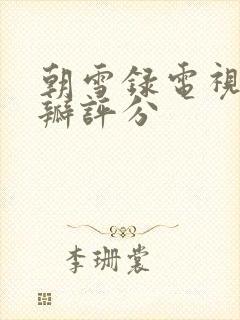 朝雪録電視
瓣評分
李珊裳